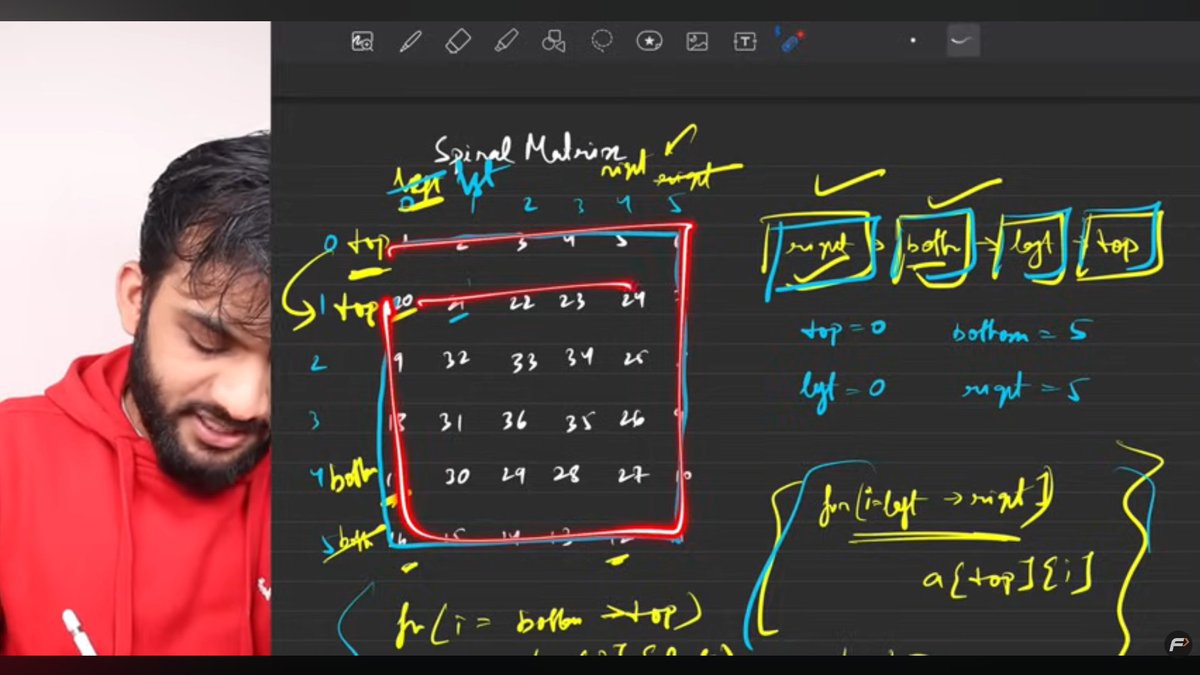 Spiral Matrix
left left right right
0 1 2 3 4 5
right → bottom → left → top
0 top 1 2 3 4 5
top = 0 bottom = 5
1 top 20 21 22 23 24
2 32 33 34 25
left = 0 right = 5
3 31 36 35 26
4 bottom 30 29 28 27 10
for(i=left → right)
5 bottom 16 15 14 13 12
a[top][i]
for(i = bottom → top)